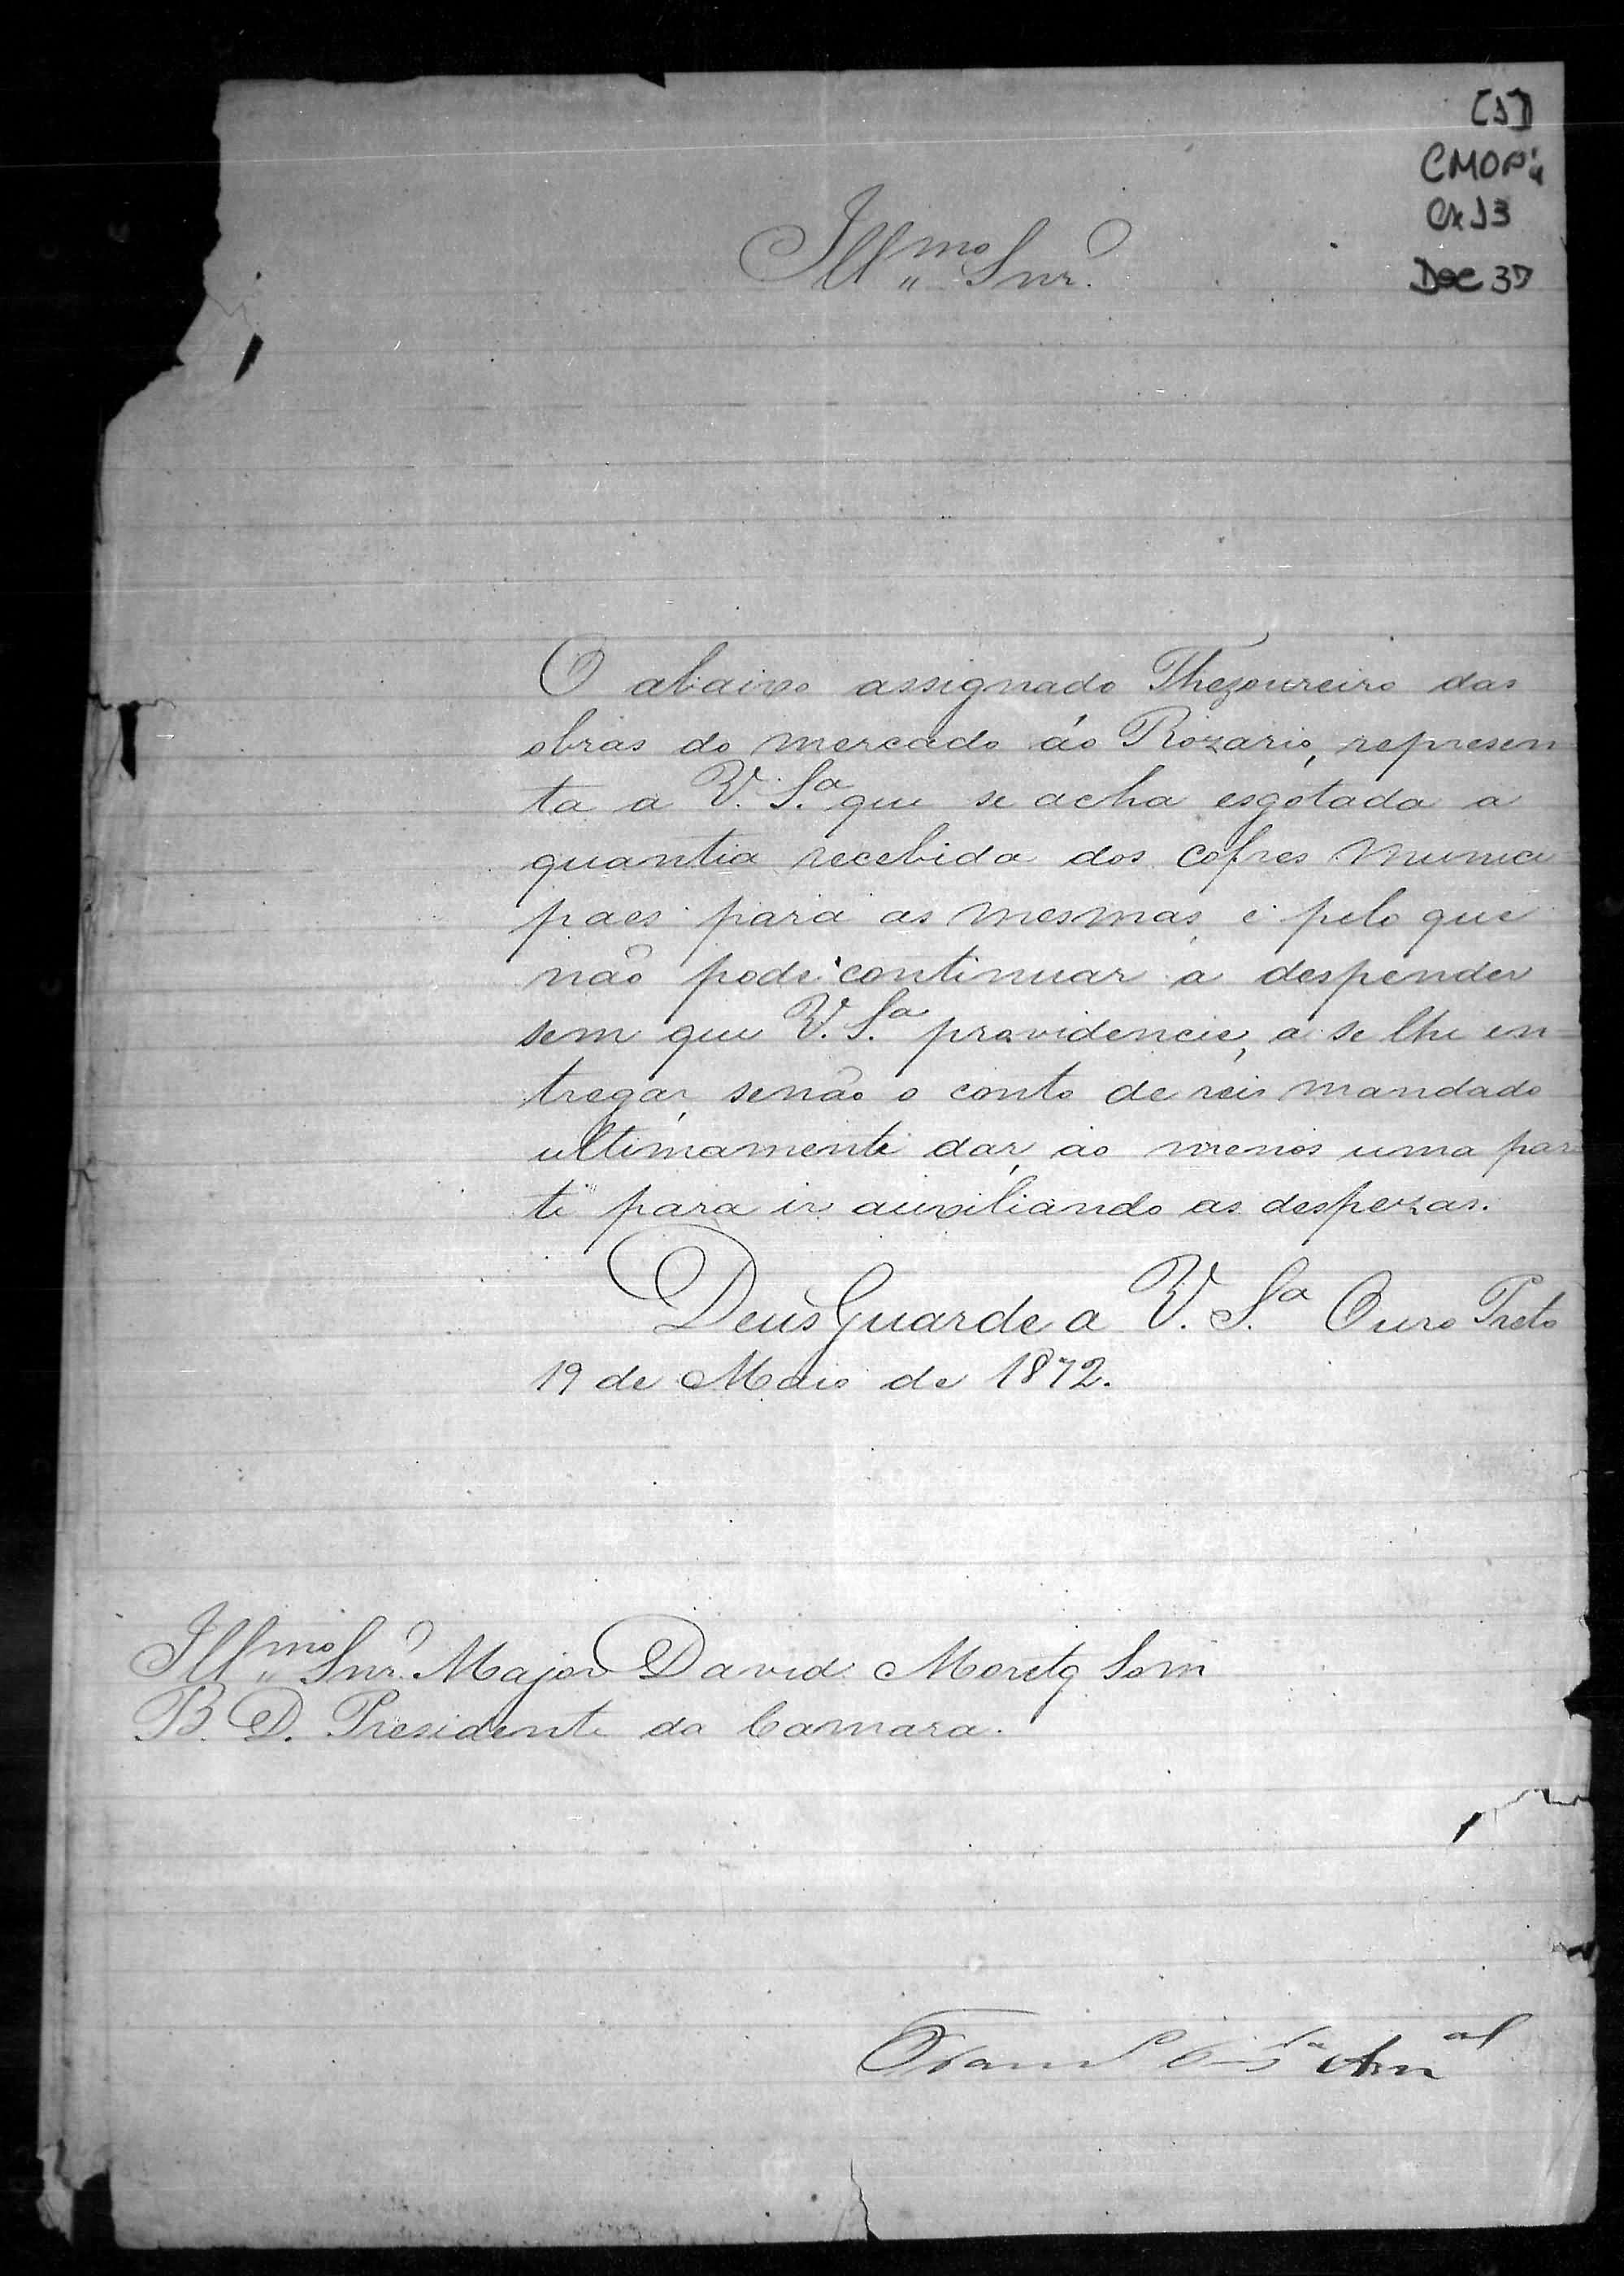 [1]
CMOP
Cx 13
Doc 37
Ill.mo Snr.
O abaixo assignado Thezoureiro das
obras do mercado áo Rozario, represen
ta a V. S.a que se acha esgotada a
quantia recebida dos cofres munici
paes para as mesmas, e pelo que
não pode continuar a despender
sem que V. S.a providencie, a se lhe en-
tregar, senão o conto de reis mandado
ultimamente dar, ao menos uma par
te para ir auxiliando as despezas.
Deus Guarde a V. S.a Ouro Preto
19 de Maio de 1872.
Ill.mo Snr. Major David Moretz Som
B. D. Presidente da Camara.